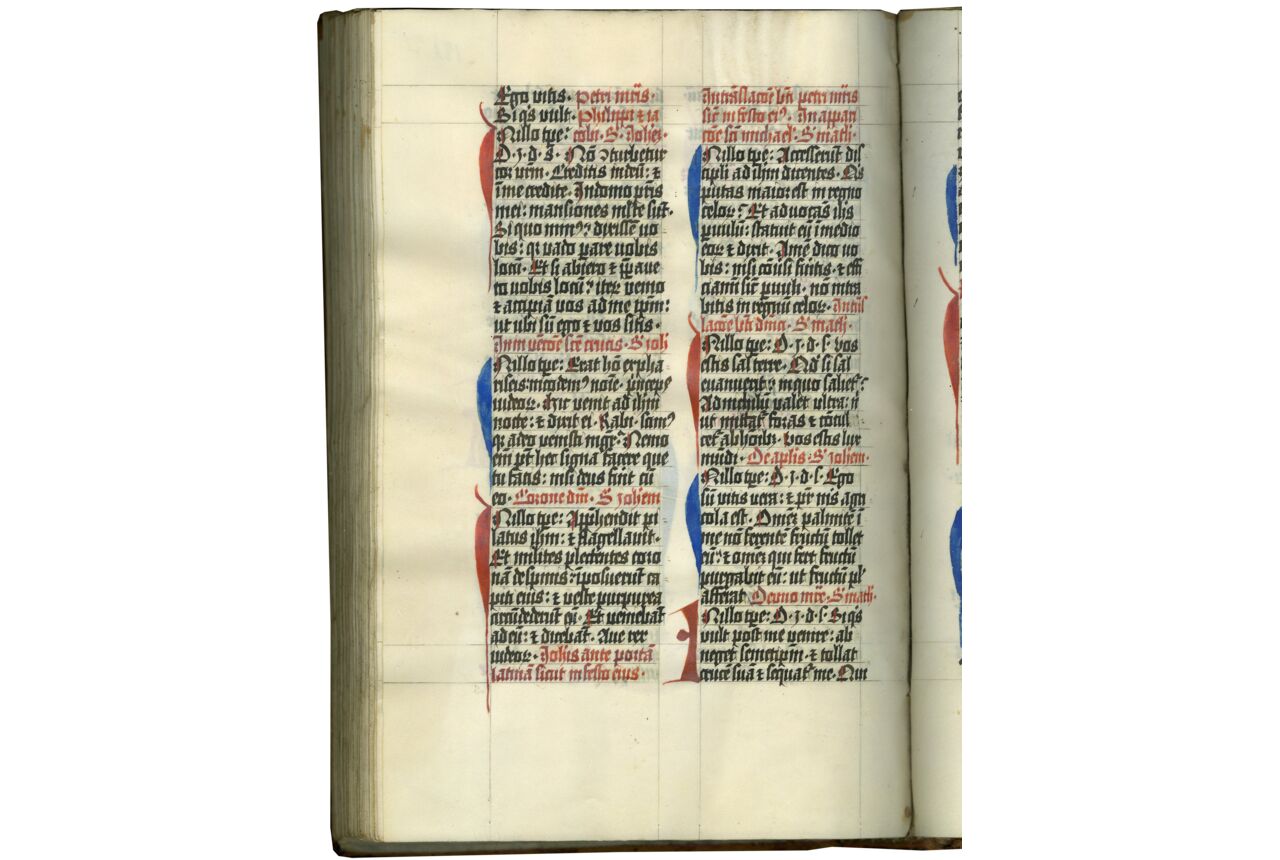 Ego vitis. Petri mr̄is.
Si q̇s vult. Philippi ⁊ ia
Nillo tpe: cobi. S. Joh̄e.
D. i. d. s. Nō ꝯturbetur
cor vrm̄. Creditis in deū: ⁊
ī me credite. In domo pr̄is
mei: mansiones ml̄te sūt.
Si quo minꝰ: dixissē vo
bis: qꝛ vado parare vobis
locū. Et si abiero ⁊ p̄paue
ro vobis locū: iteꝝ venio
⁊ accipiā vos ad me ip̄m:
ut ubi sū ego ⁊ vos sitis.
In inuētōe scē crucis. S. joh̄
Nillo tpe: Erat hō ex pha
riseis: nicodemꝰ noīe. p̄nceps
iudeoꝝ. Hic venit ad ih̄m
nocte: ⁊ dixit ei. Rabi. scimꝰ
qꝛ a deo venisti mgr̄. Nemo
em̄ pt̄ hec signa facere que
tu facis: nisi deus fuit cū
eo. Corone dn̄i. S. johem
Nillo tpe: App̄hendit pi
latus ih̄m: ⁊ flagellauit.
Et milites plectentes coro
nā de spinis: īposuerūt ca
piti eius: ⁊ veste purpurea
circūdederūt eū. Et veniebāt
ad eū: ⁊ dicebāt. Aue rex
iudeoꝝ. Joh̄is ante portā
latinā sicut in festo eius.
In trāslacōe bt̄i petri mr̄is
sic̄ in festo eiꝰ. In appari
cōe sc̄i michael. S. math.
Nillo tpe: Accesserūt dis
cipli ad ih̄m dicentes. Q̇s
putas maior est in regno
celoꝝ: Et aduocās ih̄s
paruulū: statuit eū ī medio
eoꝝ ⁊ dixit. Amē dico vo
bis: nisi cōūsi fuitis. ⁊ effi
ciamī sic̄ paruuli. nō intra
bitis in regnū celoꝝ. In trās
lacōe bt̄i dn̄ici. S. math.
Nillo tpe: D. i. d. s. vos
estis sal terre. Qd̄ si sal
euanuerit: in quo salieṯ:
Ad nichilū valet ultra: n̄
ut mittaṯ foras ⁊ cōcul
ceṯ ab hoībꝫ. Vos estis lux
mūdi. De ap̄lis. S. johem.
Nillo tpe: D. i. d. s. Ego
sū vitis vera: ⁊ pr̄ mꝰ agri
cola est. Omnē palmitē ī
me nō ferentē fructū tollet
eū: ⁊ omnē qui fert fructū
purgabit eū: ut fructū plꝰ
afferat. De uno mr̄e. S. math.
Nillo tpe: D. i. d. s. Si q̇s
vult post me venire: ab
neget semetip̄m. ⁊ tollat
crucē suā ⁊ sequaṯ me. Qui